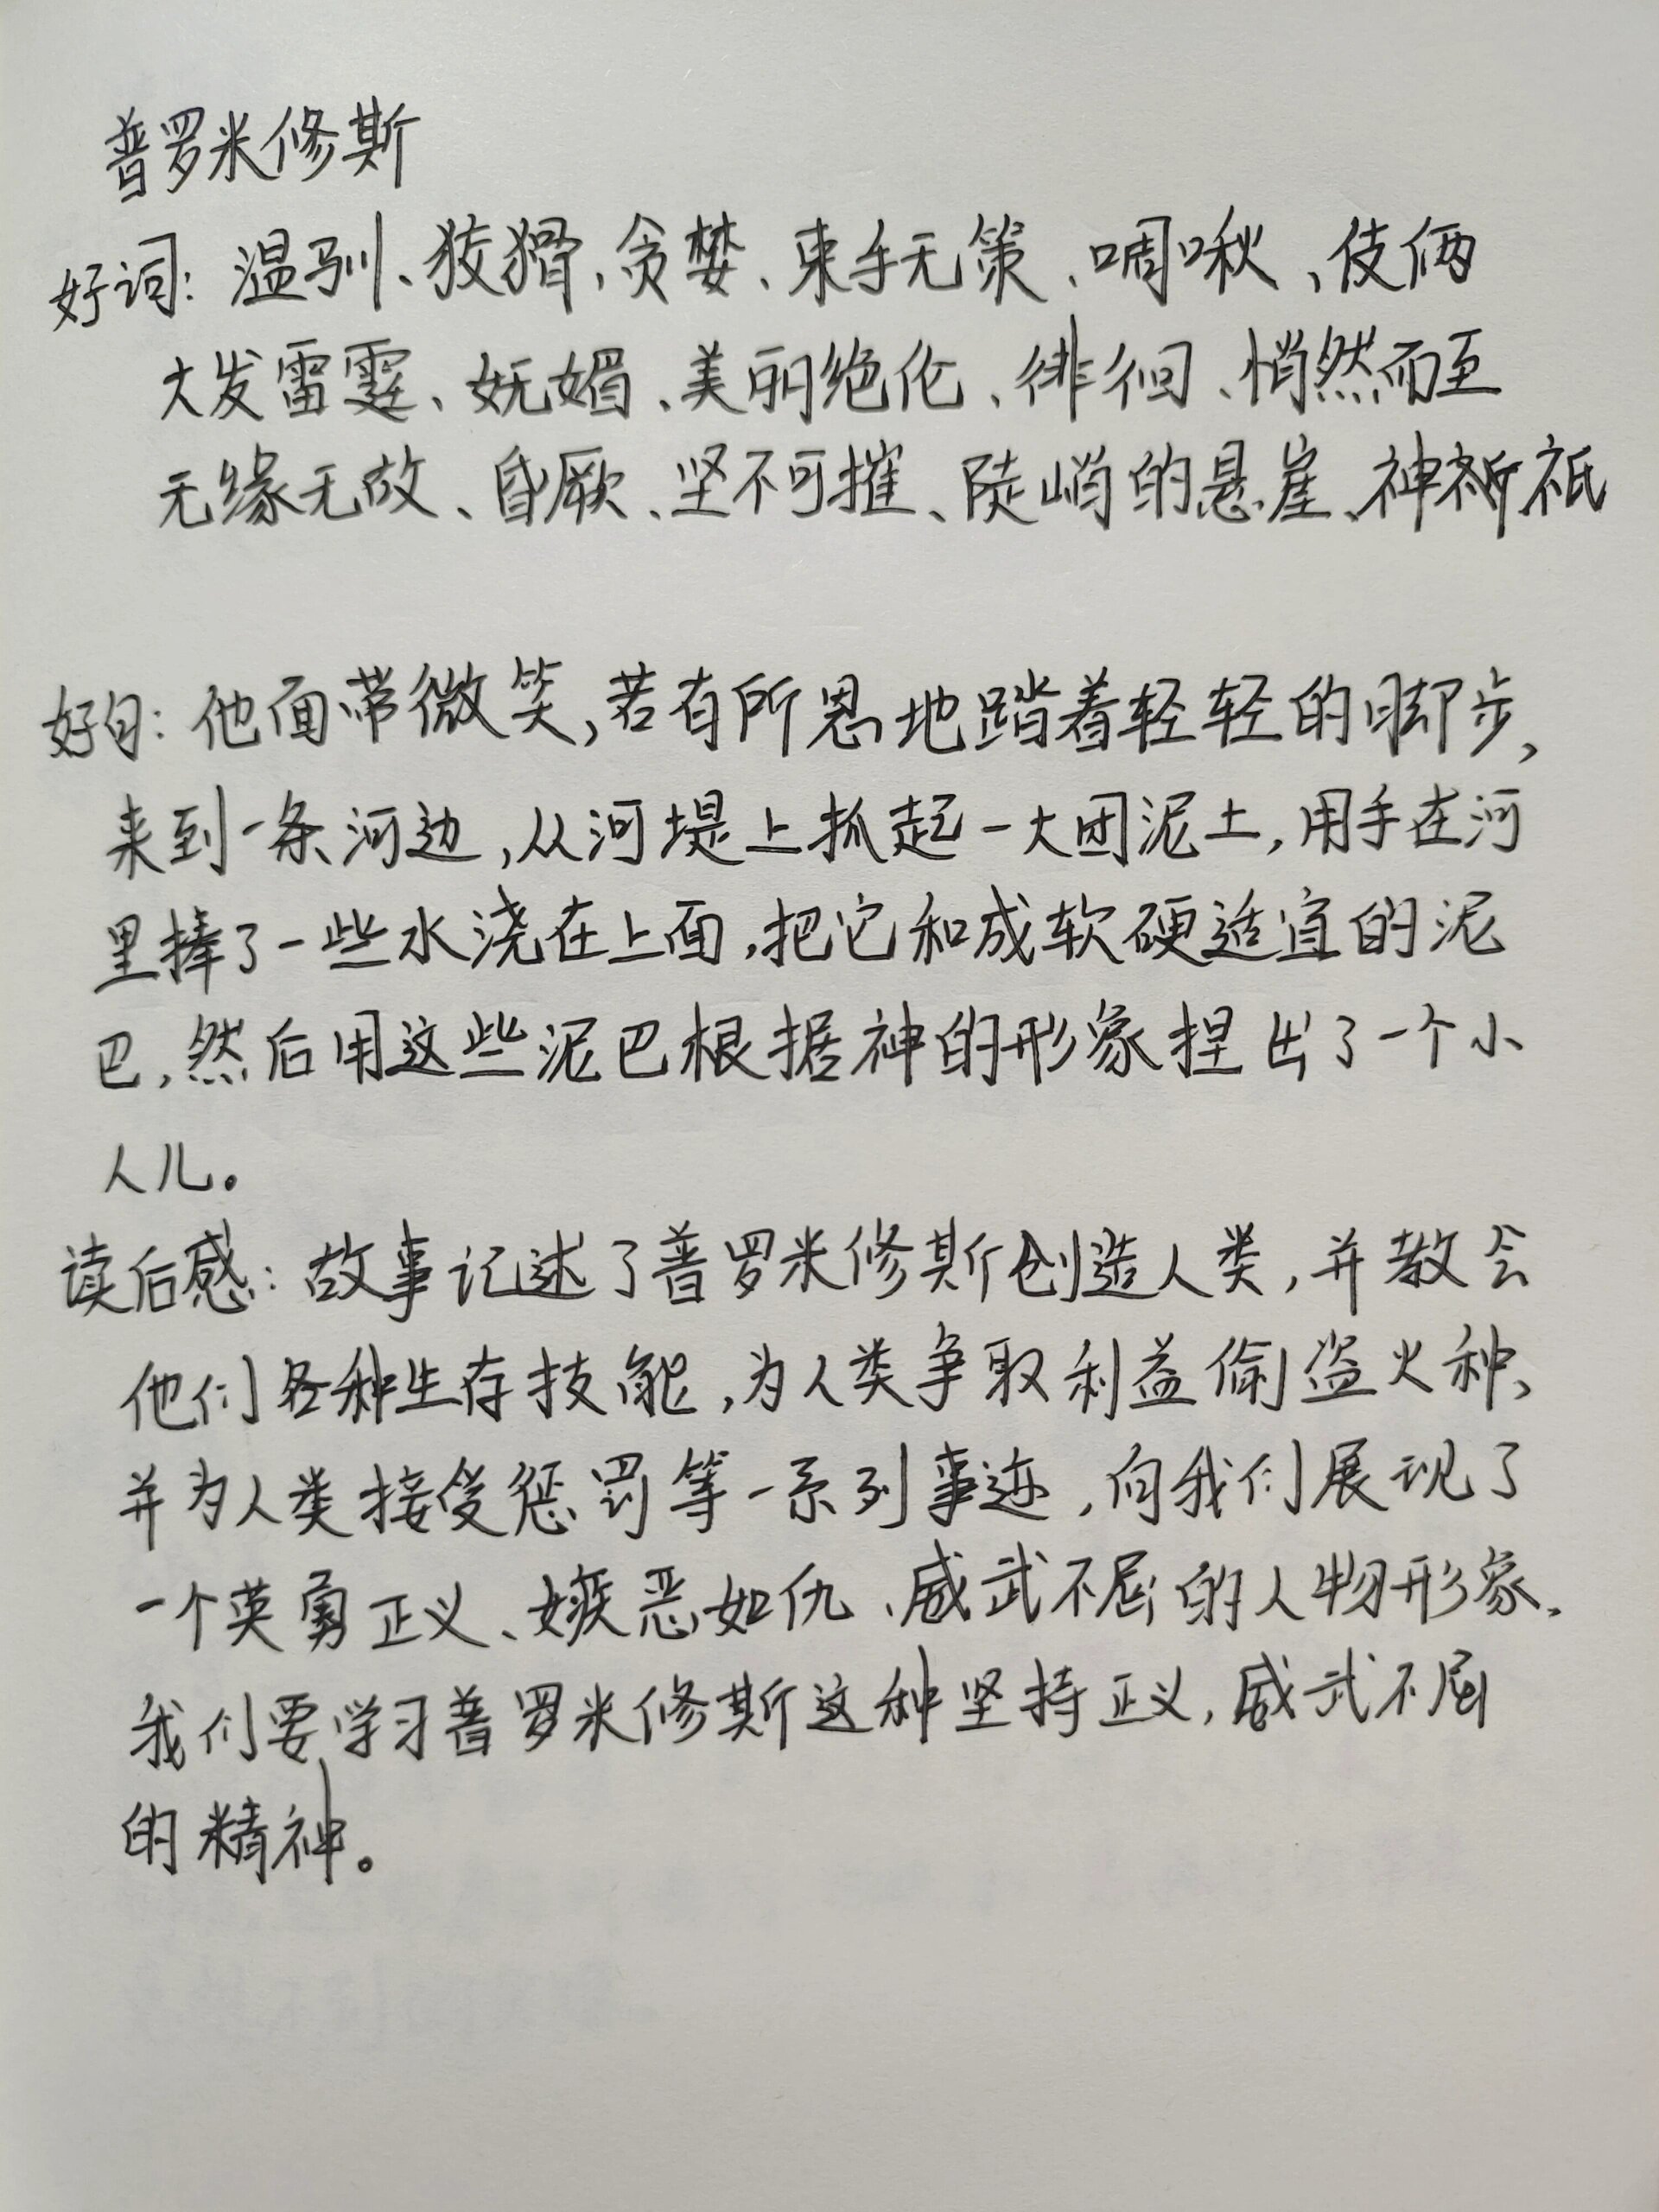 普罗米修斯
好词：温驯、狡猾、贪婪、束手无策、啁啾、伎俩
大发雷霆、妩媚、美丽绝伦、徘徊、悄然而至
无缘无故、昏厥、坚不可摧、陡峭的悬崖、神祇
好句：他面带微笑，若有所思地踏着轻轻的脚步，
来到一条河边，从河堤上抓起一大团泥土，用手在河
里捧了一些水浇在上面，把它和成软硬适宜的泥
巴，然后用这些泥巴根据神的形象捏出了一个小
人儿。
读后感：故事记述了普罗米修斯创造人类，并教会
他们各种生存技能，为人类争取利益偷盗火种、
并为人类接受惩罚等一系列事迹，向我们展现了
一个英勇正义、嫉恶如仇、威武不屈的人物形象。
我们要学习普罗米修斯这种坚持正义，威武不屈
的精神。